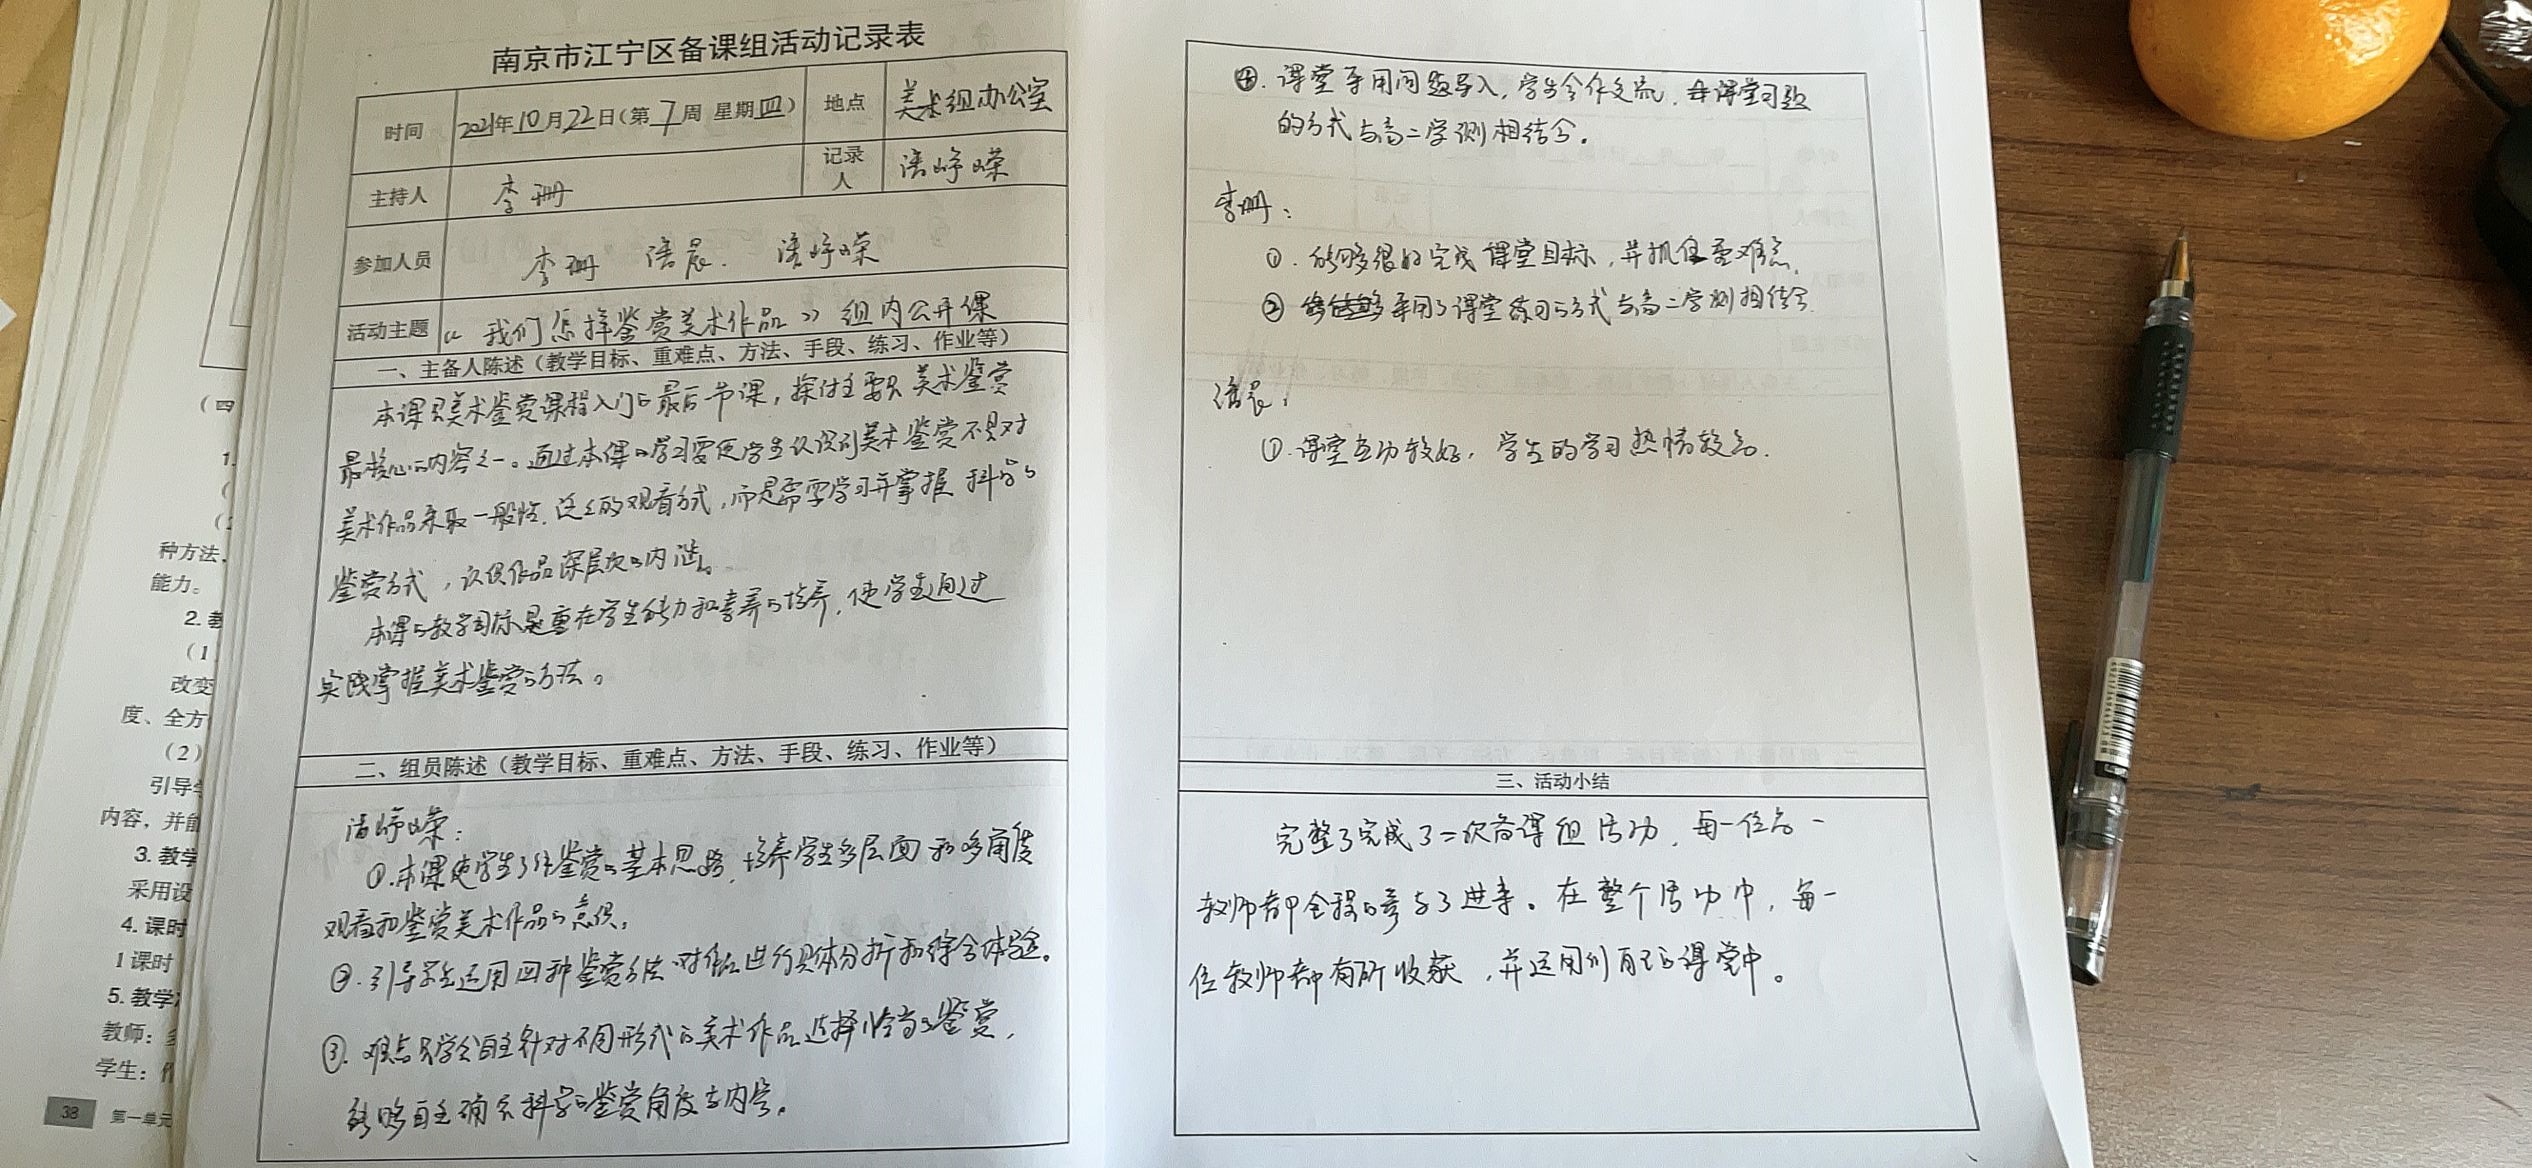 南京市江宁区备课组活动记录表
时间 2021年10月22日(第7周 星期四) 地点 美术组办公室
主持人 李珊 记录人
参加人员 李珊
活动主题 《我们怎样鉴赏美术作品》组内公开课
一、主备人陈述(教学目标、重难点、方法、手段、练习、作业等)
本课是美术鉴赏课程入门的最后一节课,探讨主要是美术鉴赏
最核心的内容之一。通过本课的学习要使学生认识到美术鉴赏不是对
美术作品采取一般性、泛泛的观看方式,而是需要学习并掌握科学的
鉴赏方式,认识作品深层次的内涵。
本课的教学目标是重在学生能力和素养的培养,使学生通过
实践掌握美术鉴赏的方法。
二、组员陈述(教学目标、重难点、方法、手段、练习、作业等)
①.本课使学生了解鉴赏的基本思路,培养学生多层面和多角度
观看和鉴赏美术作品的意识。
②.引导学生运用四种鉴赏方法对作品进行具体分析和综合体验。
③.难点是学会自主针对不同形式的美术作品选择恰当的鉴赏,
能够自主确定科学的鉴赏角度与内容。
④.课堂采用问题导入,学生合作交流,课堂习题
的方式与高二学测相结合。
李珊:
①.能够很好完成课堂目标,并抓住重难点。
②采用了课堂练习的方式与高二学测相结合.
①.课堂互动较好,学生的学习热情较高.
三、活动小结
完整了完成了一次备课组活动,每一位
教师都全程的参与了进来。在整个活动中,每一
位教师都有所收获,并运用到自己的课堂中。
(四
1.
(
(2
种方法、
能力。
2. 教
(1
改变
度、全方
(2)
引导学
内容,并能
3. 教学
采用设
4. 课时
1课时
5. 教学
教师:
学生:作
38 第一单元